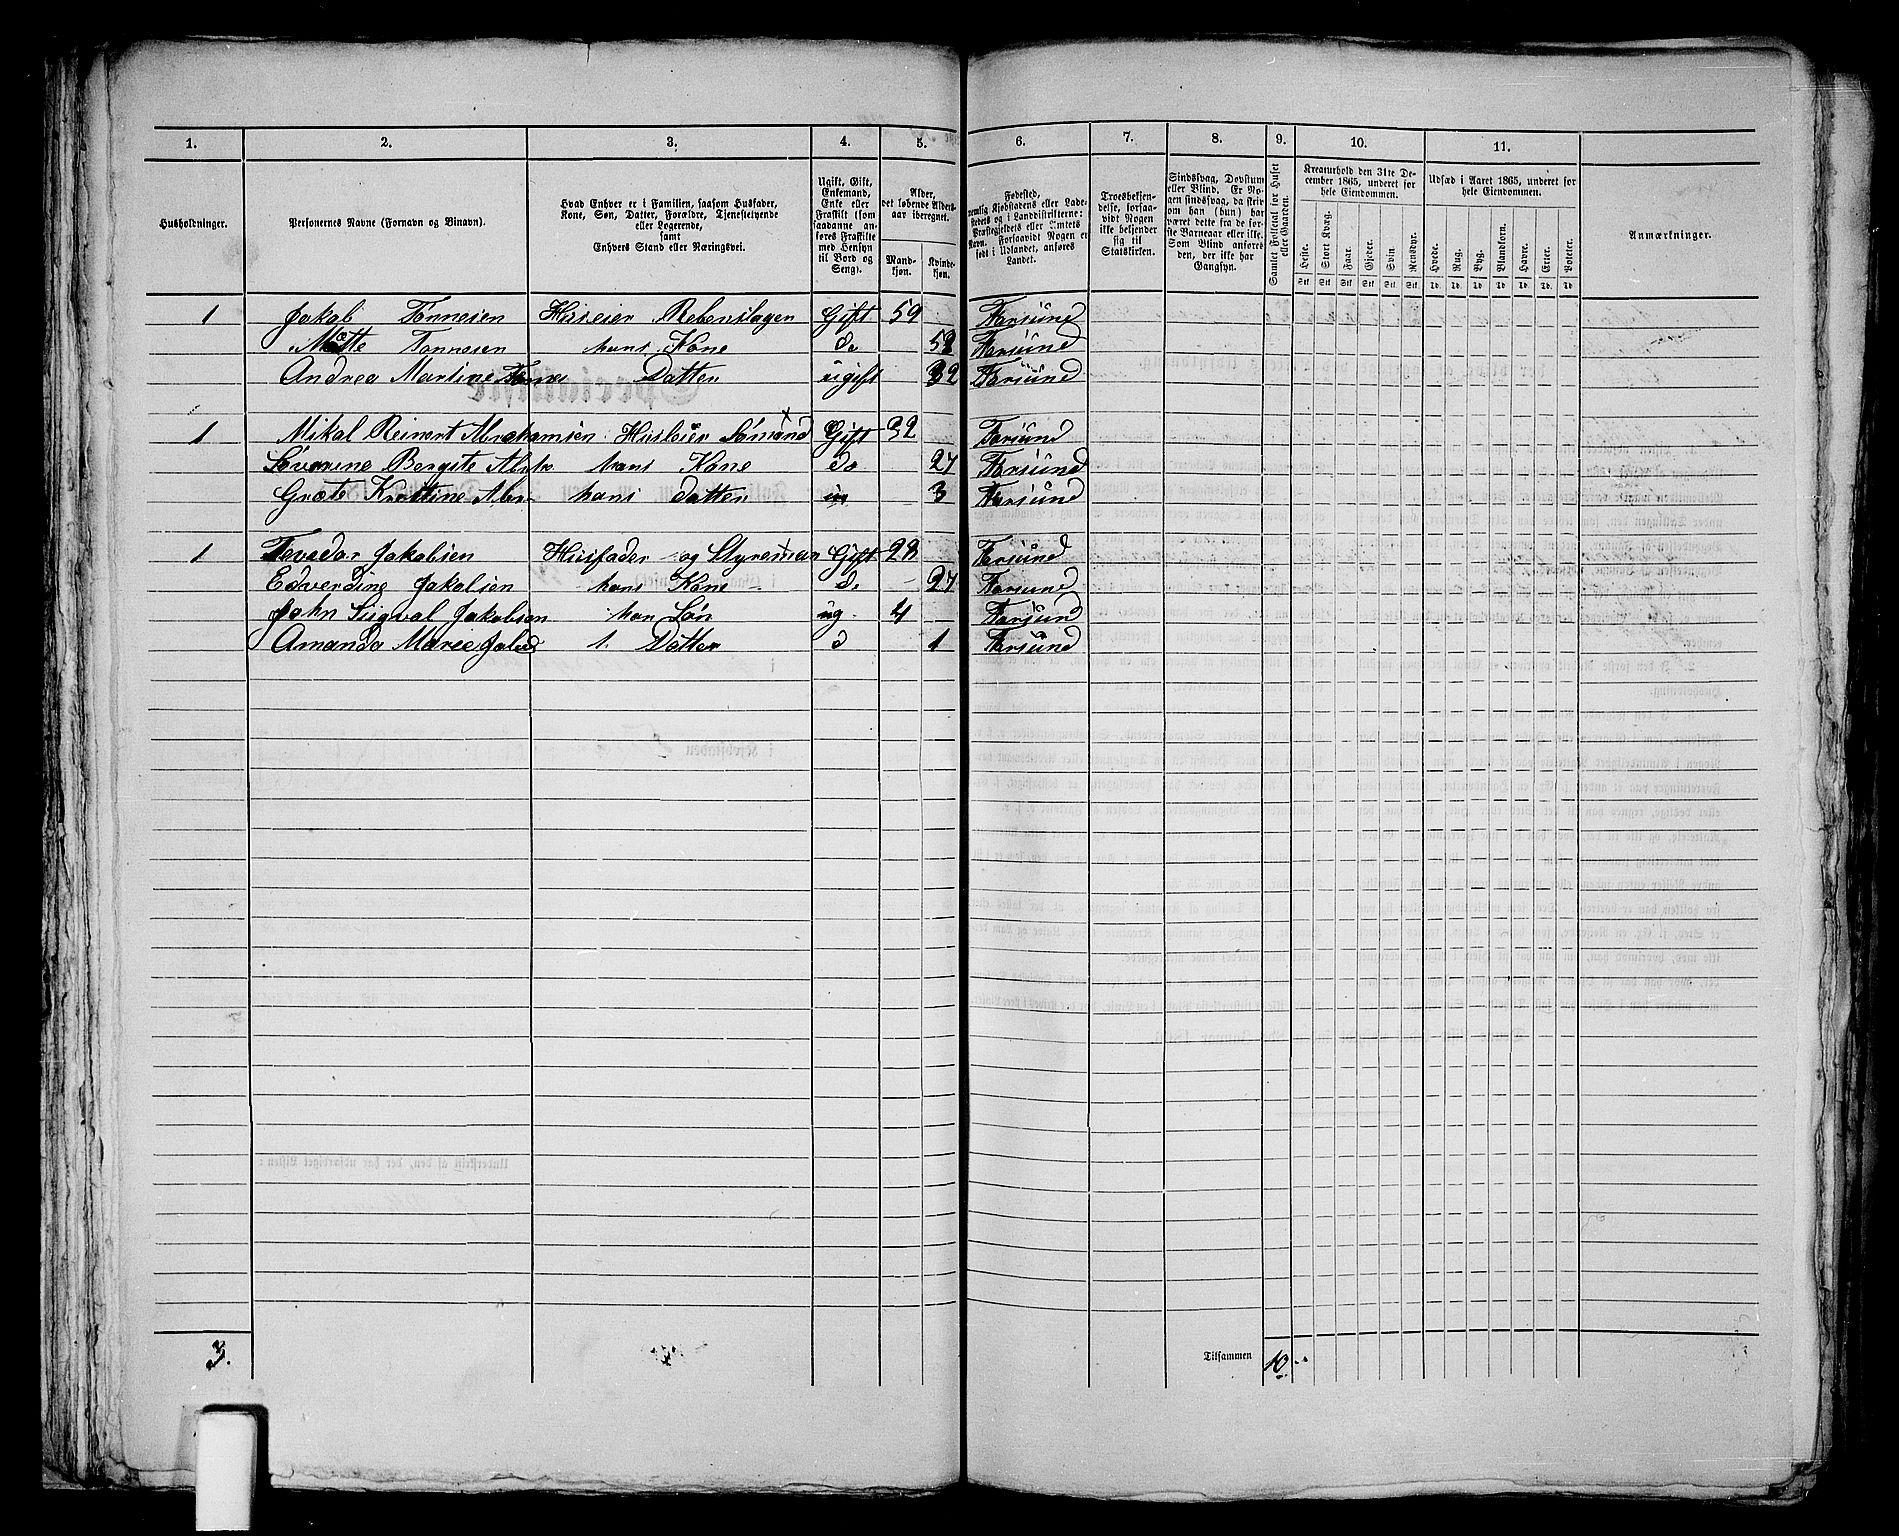 1. 2. 3. 4. 5. 6. 7. 8. 9. 10. 11.
Husholdninger.
Personernes Navne (Fornavn og Binavn).
Hvad Enhver er i Familien, saasom Husfader,
Kone, Søn, Datter, Forældre, Tjenestetyende
eller Logerende,
samt
Enhvers Stand eller Næringsvei.
Ugift, Gift,
Enkemand,
Enke eller
Fraskilt (som
saadanne an-
føres Fraskilte
med Henhyn
til Bord og
Seng).
Alder,
det løbende Alders-
aar iberegnet.
Mand-
kjøn.
Kvinde-
kjøn.
Fødested,
nemlig Kjøbstadens eller Lade-
stedets og i Landdistrikterne:
Præstegjeldets eller Amtets
Navn. Forsaavidt Nogen er
født i Udlandet, anføres
Landet.
Troesbekjen-
delse, forsaa-
vidt Nogen
ikke bekjender
sig til
Statskirken.
Sindssvag, Døvstum
eller Blind. Er No-
gen sindssvag, da skriv
om han (hun) har
været dette fra de før-
ste Barneaar eller ikke.
Som Blind anføres
den, der ikke har
Gangsyn.
Samlet Folketal for Huset
eller Gaarden.
Kreaturhold den 31te De-
cember 1865, underet for
hele Eiendommen.
Heste. Stort Kvæg. Faar. Gjeder. Svin. Rensdyr.
Stk Stk Stk Stk Stk Stk
Udsæd i Aaret 1865, underet for
hele Eiendommen.
Hvede. Rug. Byg. Blandkorn. Havre. Erter. Poteter.
Td. Td. Td. Td. Td. Td. Td.
Anmærkninger.
1 Jakob Tønnesen Huseier Rebenslagen Gift 59 Farsund
Mette Tønnesen hans Kone do 52 Farsund
Andrea Martine Datter ugift 32 Farsund
1 Mikal Reinert Abrahamsen Huseier Sømand Gift 32 Farsund
Severine Bergite Abrh hans Kone do 27 Farsund
Græte Krestine Abr hans datter ug 3 Farsund
1 Tevodor Jakobsen Husfader og Styreman Gift 28 Farsund
Edverdine Jakobsen hans Kone d. 27 Farsund
John Sigval Jakobsen han Søn ug. 4 Farsund
Amanda Marie 1. Datter d 1 Farsund
3.
Tilsammen 10